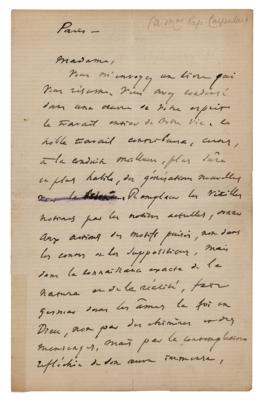 (à Mme Pape Carpantier)
Paris —
Madame,
Vous m'envoyez un livre qui
vous résume. Vous avez condensé
dans une œuvre de votre esprit
le travail entier de votre vie. Ce
noble travail contribuera,
à la conduite meilleure, plus sûre
et plus habile, des générations nouvelles
Remplacer les vieilles
notions par les notions actuelles, donner
aux actions des motifs puisés, non dans
les contes ou les suppositions, mais
dans la connaissance exacte de la
nature ou de la réalité, faire
germer dans les âmes la foi en
Dieu, non par des chimères et des
mensonges, mais par la contemplation
réfléchie de son œuvre immense,